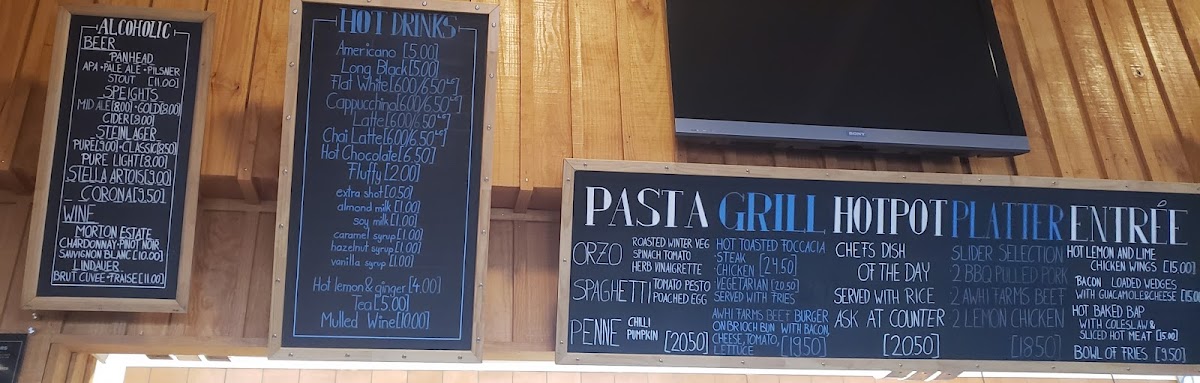 ALCOHOLIC
BEER
PANHEAD
APA • PALE ALE • PILSNER
STOUT [11.00]
SPEIGHTS
MID ALE [8.00] • GOLD [9.00]
CIDER [9.00]
STEINLAGER
PURE [9.00] • CLASSIC [8.50]
PURE LIGHT [8.00]
STELLA ARTOIS [9.00]
CORONA [9.50]
WINE
MORTON ESTATE
CHARDONNAY • PINOT NOIR
SAUVIGNON BLANC [10.00]
LINDAUER
[BRUT CUVEE • FRAISE [11.00]
HOT DRINKS
Americano [5.00]
Long Black [5.00]
Flat White [6.00/6.50 LG]
Cappuccino [6.00/6.50 LG]
Latte [6.00/6.50 LG]
Chai Latte [6.00/6.50 LG]
Hot Chocolate [6.50]
Fluffy [2.00]
extra shot [0.50]
almond milk [1.00]
soy milk [1.00]
caramel syrup [1.00]
hazelnut syrup [1.00]
vanilla syrup [1.00]
Hot lemon & ginger [4.00]
Tea [5.00]
Mulled Wine [10.00]
SONY
PASTA
ORZO ROASTED WINTER VEG
SPINACH TOMATO
HERB VINAIGRETTE
SPAGHETTI TOMATO PESTO
POACHED EGG
PENNE CHILLI
PUMPKIN [20.50]
GRILL
HOT TOASTED FOCCACIA
STEAK
CHICKEN [24.50]
VEGETARIAN [20.50]
SERVED WITH FRIES
AWHI FARMS BEEF BURGER
ON BRIOCH BUN WITH BACON,
CHEESE, TOMATO,
LETTUCE [19.50]
HOTPOT
CHEFS DISH
OF THE DAY
SERVED WITH RICE
ASK AT COUNTER
[20.50]
PLATTER
SLIDER SELECTION
2 BBQ PULLED PORK
2 AWHI FARMS BEEF
2 LEMON CHICKEN
[18.50]
ENTRÉE
HOT LEMON AND LIME
CHICKEN WINGS [15.00]
BACON LOADED WEDGES
WITH GUACAMOLE & CHEESE [15.00
HOT BAKED BAP
WITH COLESLAW &
SLICED HOT MEAT [15.00]
BOWL OF FRIES [9.50]